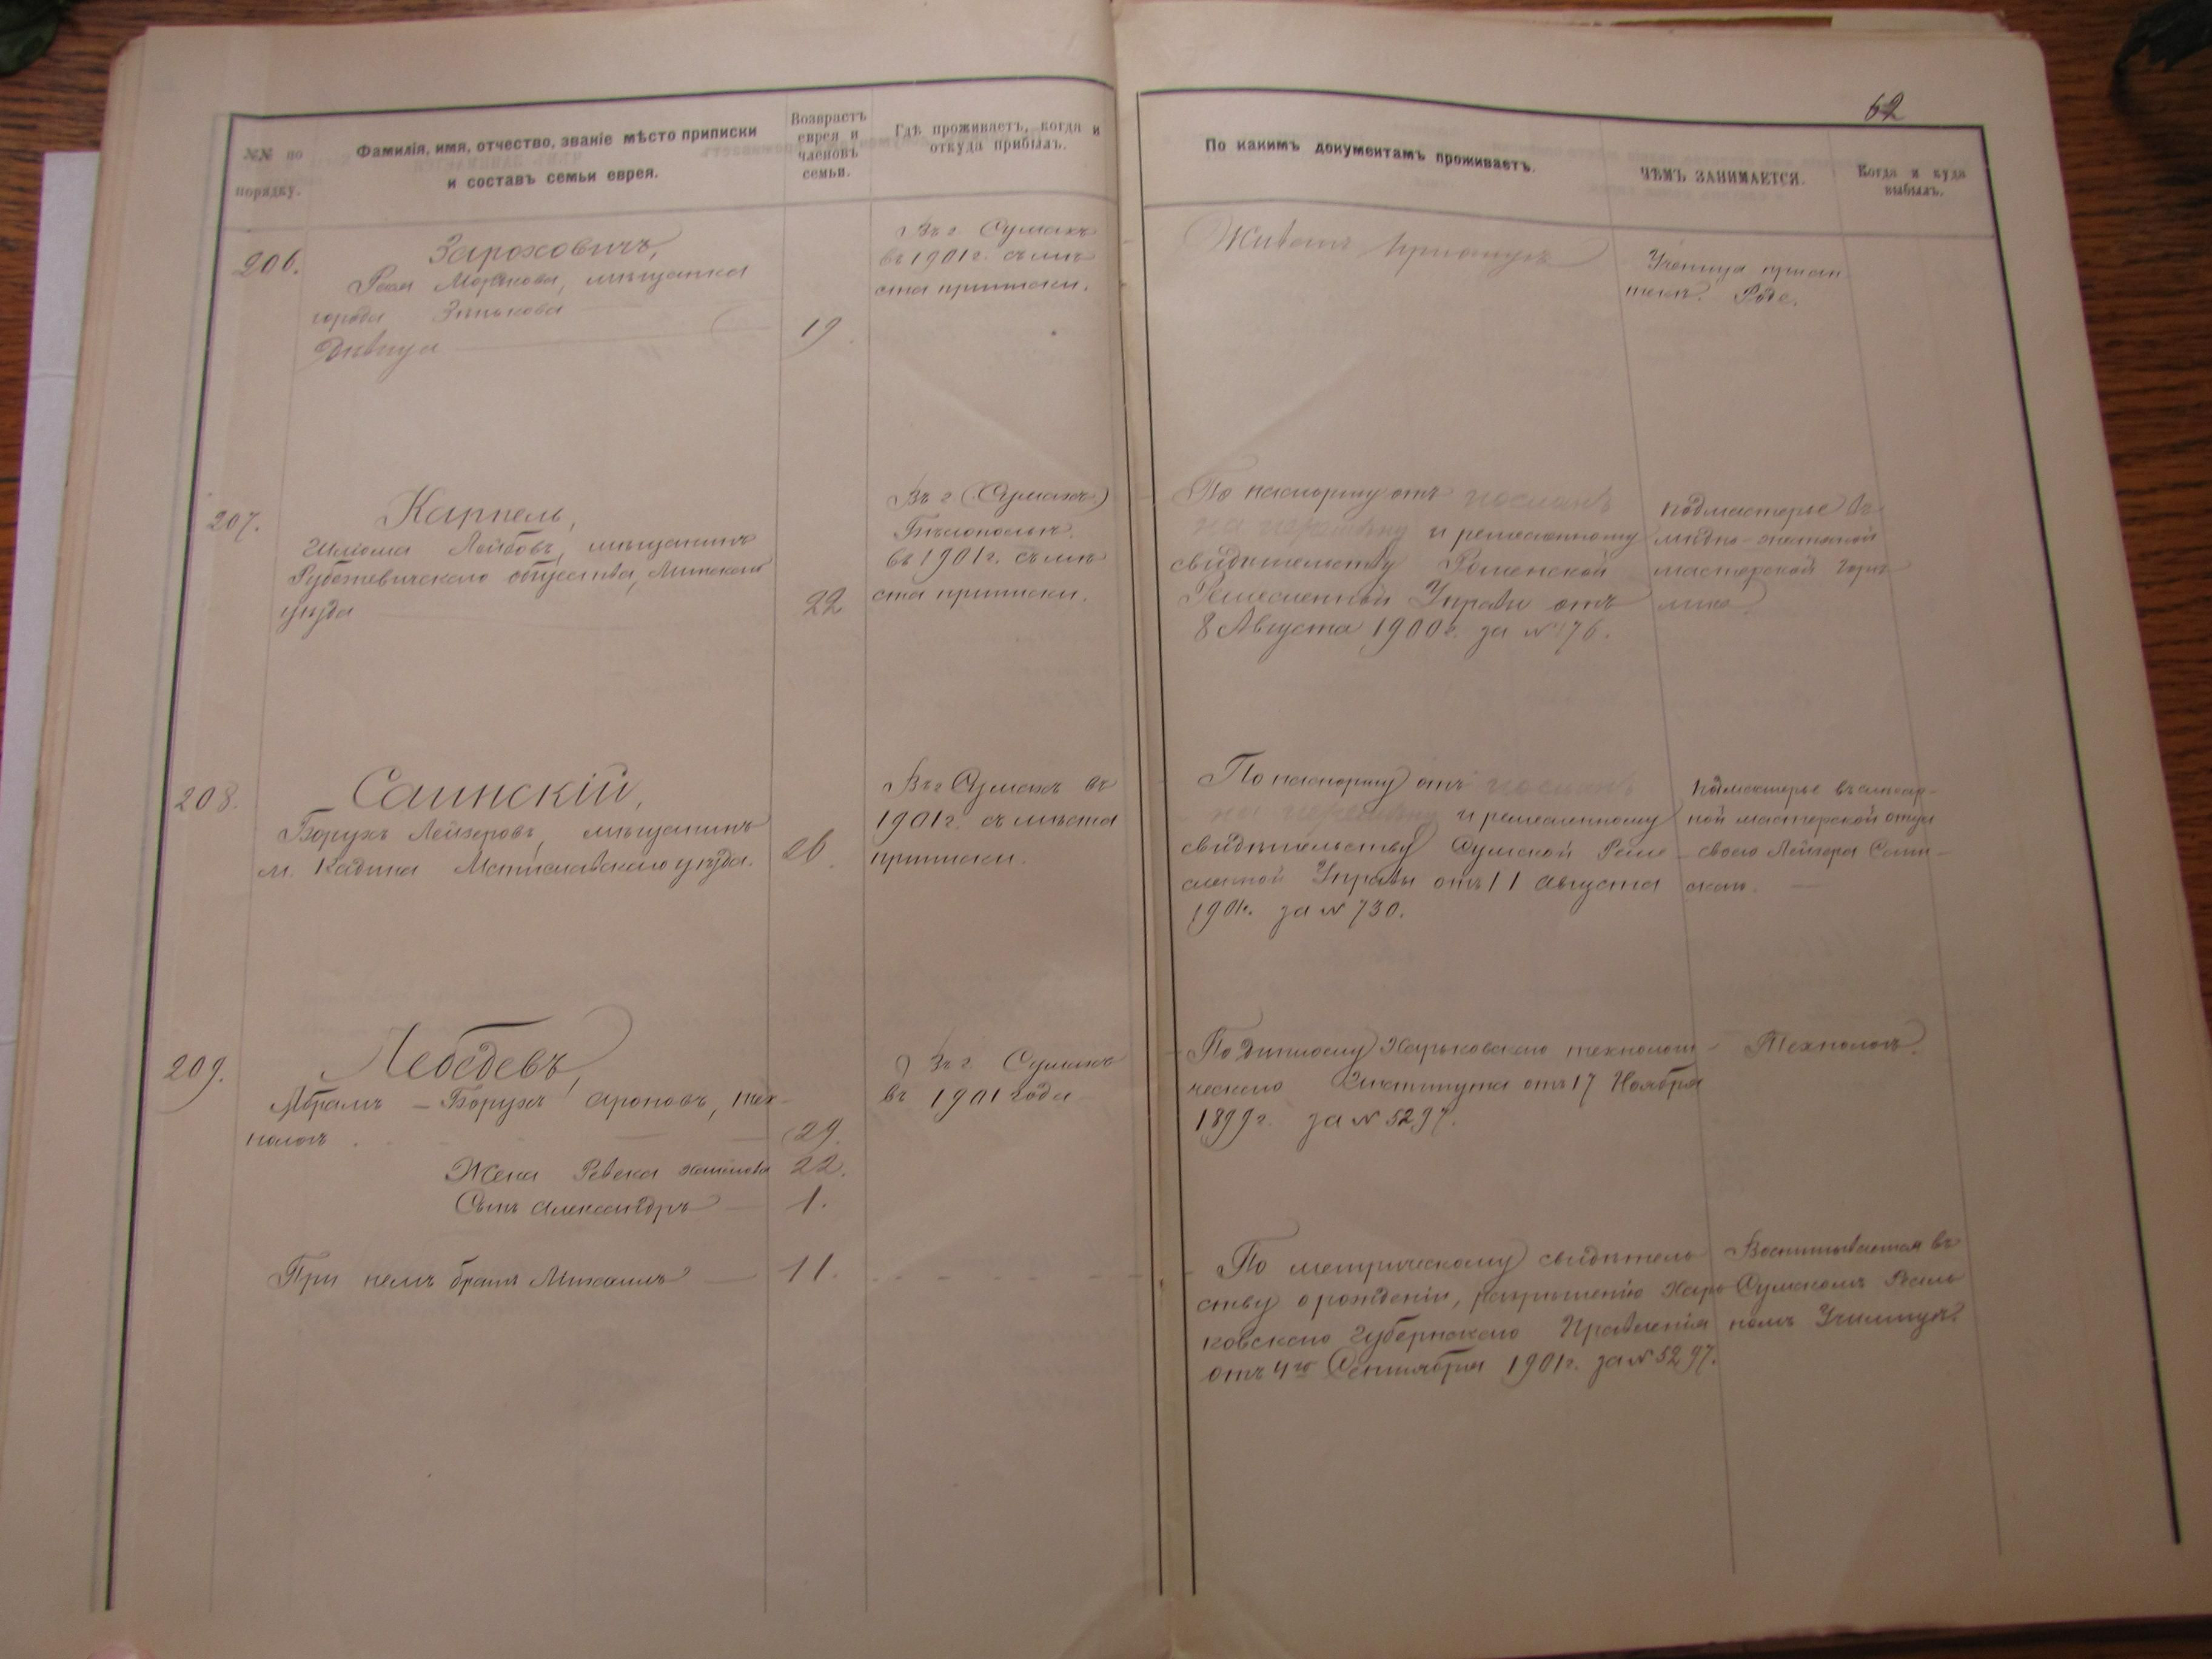 62
№№ по порядку.
Фамилія, имя, отчество, званіе мѣсто приписки
и составъ семьи еврея.
Возврастъ
еврея и
членовъ
семьи.
Гдѣ проживаетъ, когда и
откуда прибылъ.
По какимъ документамъ проживаетъ.
ЧѢМЪ ЗАНИМАЕТСЯ.
Когда и куда
выбылъ.
206.
Зароховичъ,
мѣщанка
города Зинькова
Дѣвица
19
Въ г. Сумахъ
въ 1901 г. съ мѣ
ста приписки.
Живетъ
Ученица
207.
Карпель,
Шлiома Лейбовъ, мѣщанинъ
Рубежевичскаго общества, Минскаго
уѣзда
22
Въ г. (Сумахъ)
Бѣлопольѣ.
въ 1901 г. съ мѣ
ста приписки.
По паспорту отъ посланъ
на перемѣну и ремесленному
свидѣтельству Роменской
Ремесленной Управы отъ
8 Августа 1900 г. за № 176.
подмастерье въ
мѣдно-жестяной
мастерской
208.
Слинскій,
Борухъ Лейзеровъ, мѣщанинъ
м. Кадина Мстиславскаго уѣзда.
26.
Въ г. Сумахъ въ
1901 г. съ мѣста
приписки.
По паспорту отъ посланъ
на перемѣну и ремесленному
свидѣтельству Сумской Реме
сленной Управы отъ 11 Августа
1901 г. за № 730.
подмастерье въ слесар-
ной мастерской отца
своего Лейзера Слин-
скаго.
209.
Лебедевъ,
Абрамъ-Борухъ Ароновъ, тех-
нологъ.
29.
Жена Ревека 22.
Сынъ Александръ 1.
При немъ братъ Михаилъ 11.
Въ г. Сумахъ
въ 1901 году
По диплому Харьковскаго технологи-
ческаго Института отъ 17 Ноября
1899 г. за № 5297.
Технологъ.
По метрическому свидѣтель
ству о рожденіи, разрѣшенію Харь
ковскаго Губернскаго Правленія
отъ 4го Сентября 1901 г. за № 5297.
Воспитывается въ
Сумскомъ Реаль
номъ Училищѣ.